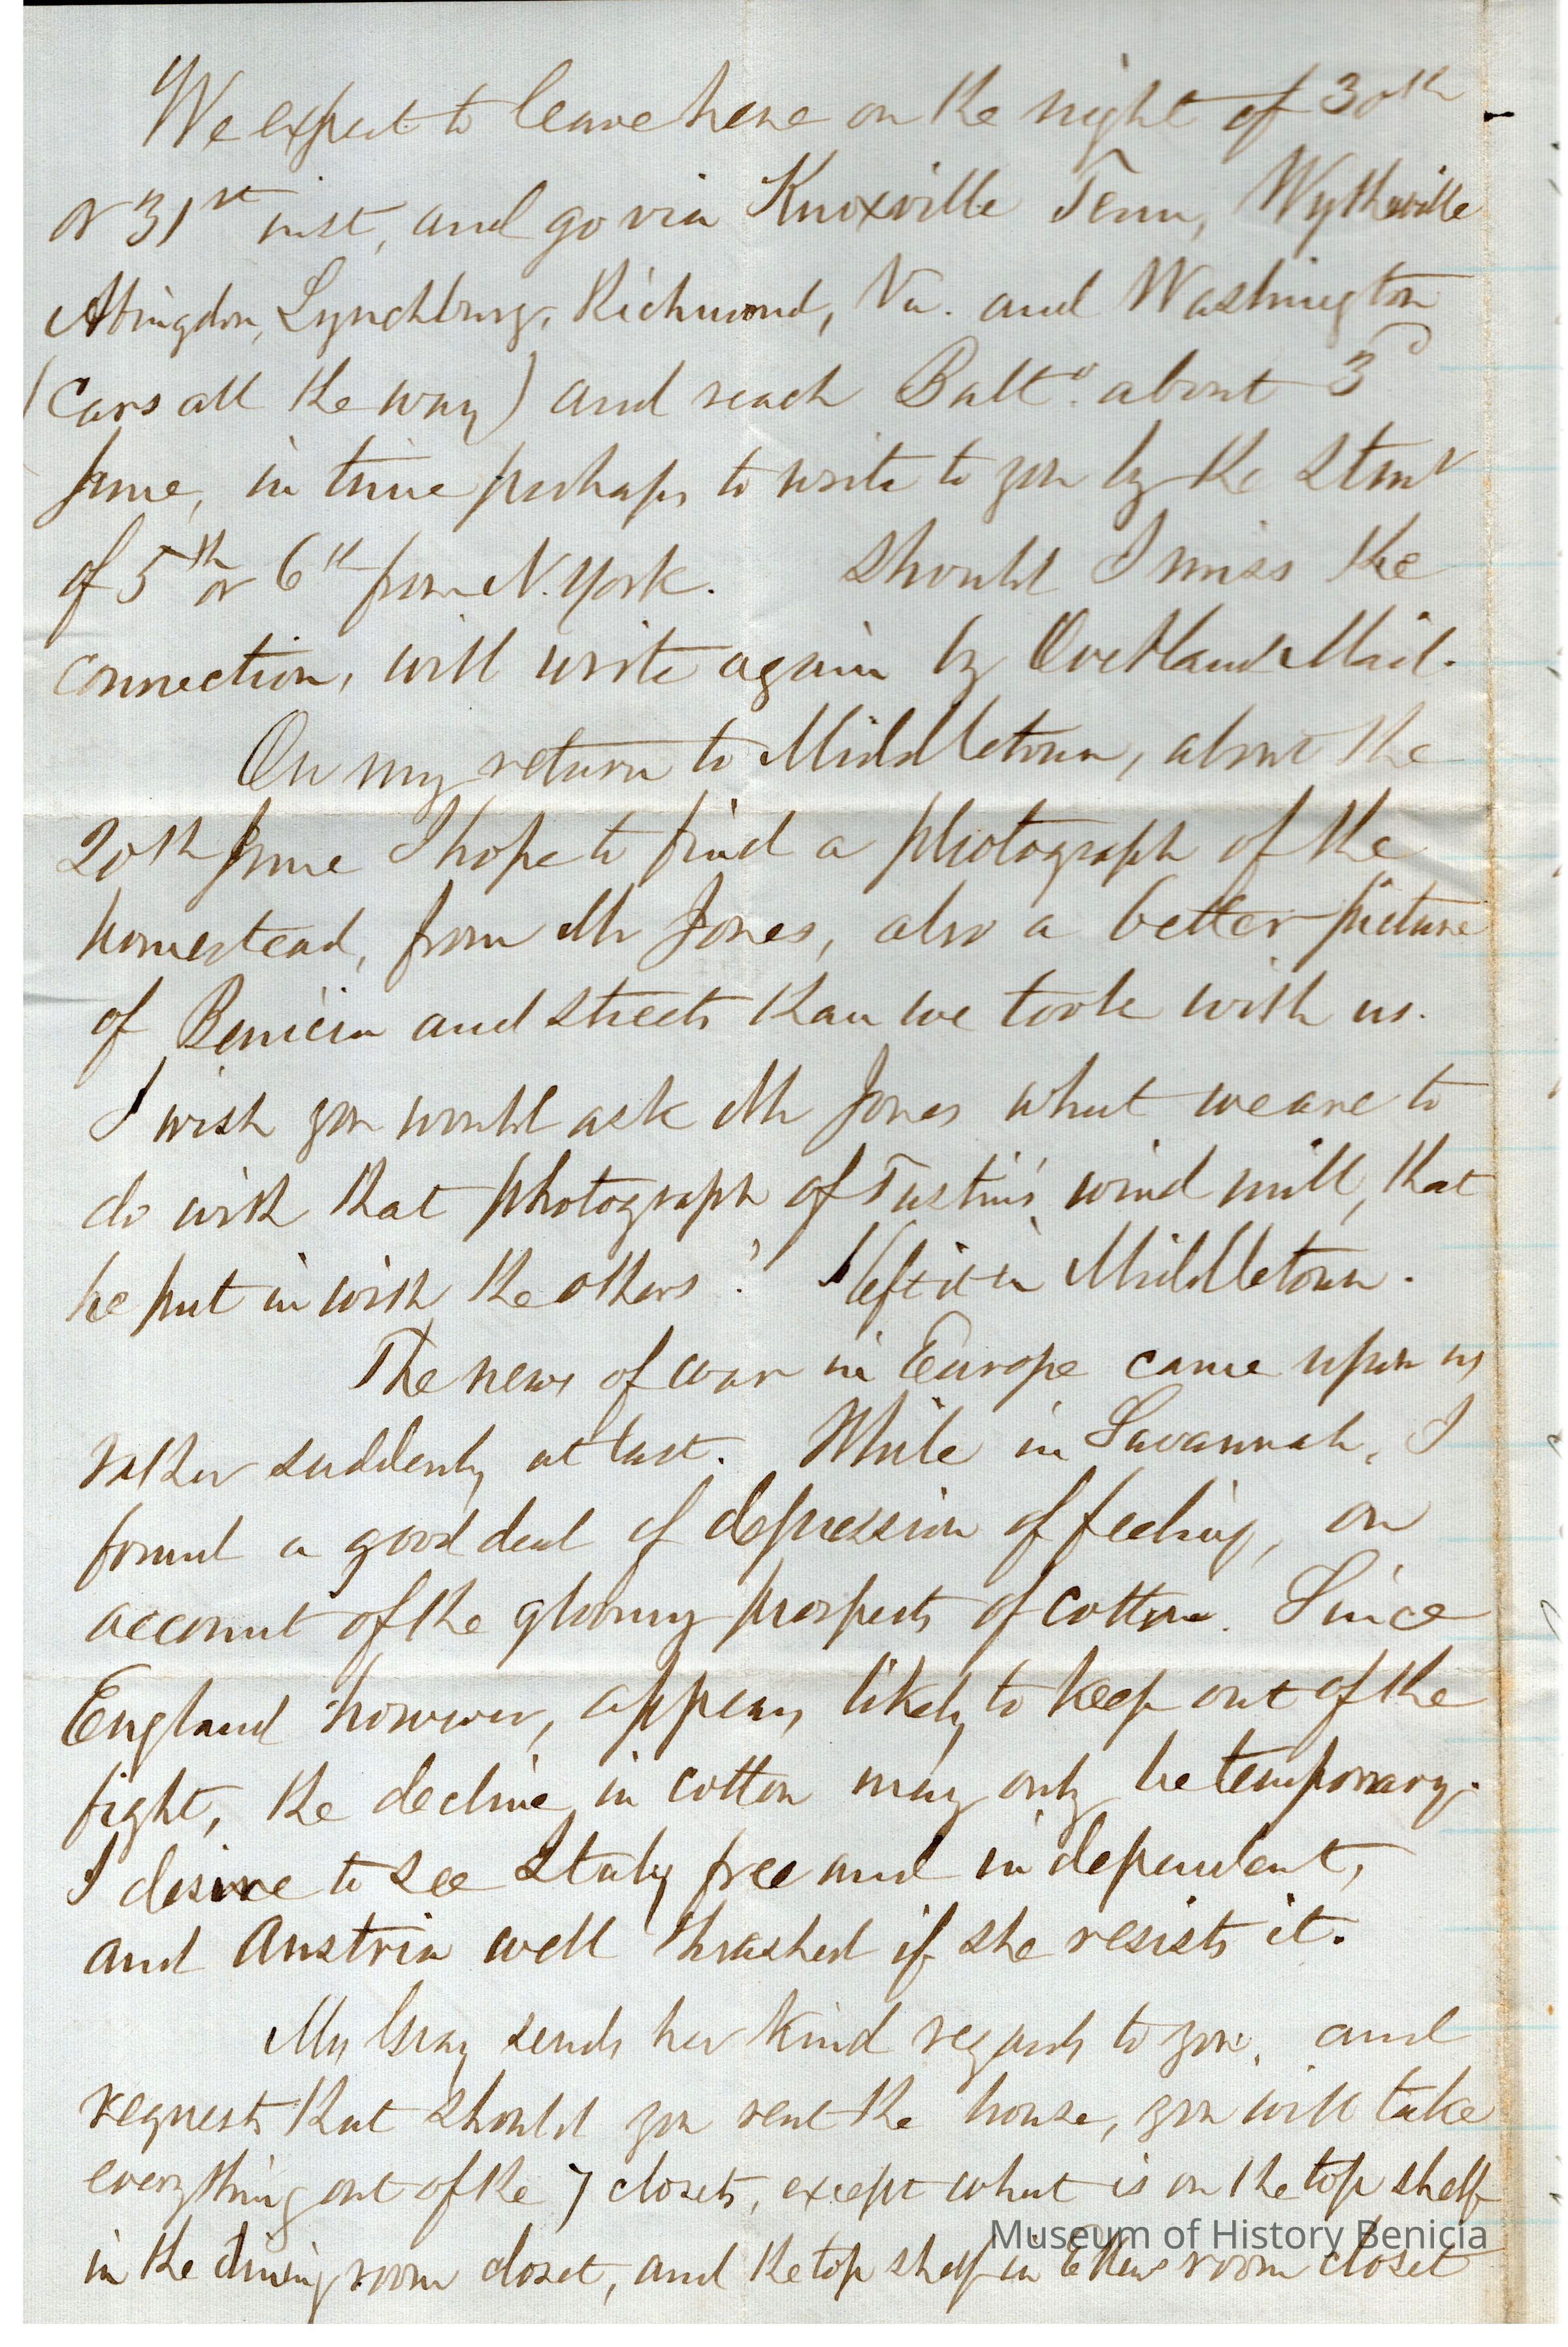 We expect to leave here on the night of 30th
or 31st inst, and go via Knoxville Tenn, Wytheville
Abingdon, Lynchburg, Richmond, Va. and Washington
(Cars all the way) and reach Balto. about 3d
June, in time perhaps to write to you by the Stmr
of 5th or 6th from N. York. Should I miss the
connection, will write again by Overland Mail.
On my return to Middletown, about the
20th June I hope to find a photograph of the
homestead, from Mr Jones, also a better picture
of Benicia and streets than we took with us.
I wish you would ask Mr Jones what we are to
do with that photograph of Tustin's wind mill, that
he put in with the others? I left it in Middletown.
The news of war in Europe came upon us
rather suddenly at last. While in Savannah, I
found a good deal of depression of feeling, on
account of the gloomy prospects of cotton. Since
England however, appears likely to keep out of the
fight, the decline in cotton may only be temporary.
I desire to see Italy free and independent,
and Austria well thrashed if she resists it.
Mrs Gray sends her kind regards to you, and
requests that should you rent the house, you will take
everything out of the 7 closets, except what is on the top shelf
in the dining room closet, and the top shelf in Ellen's room closet
Museum of History Benicia